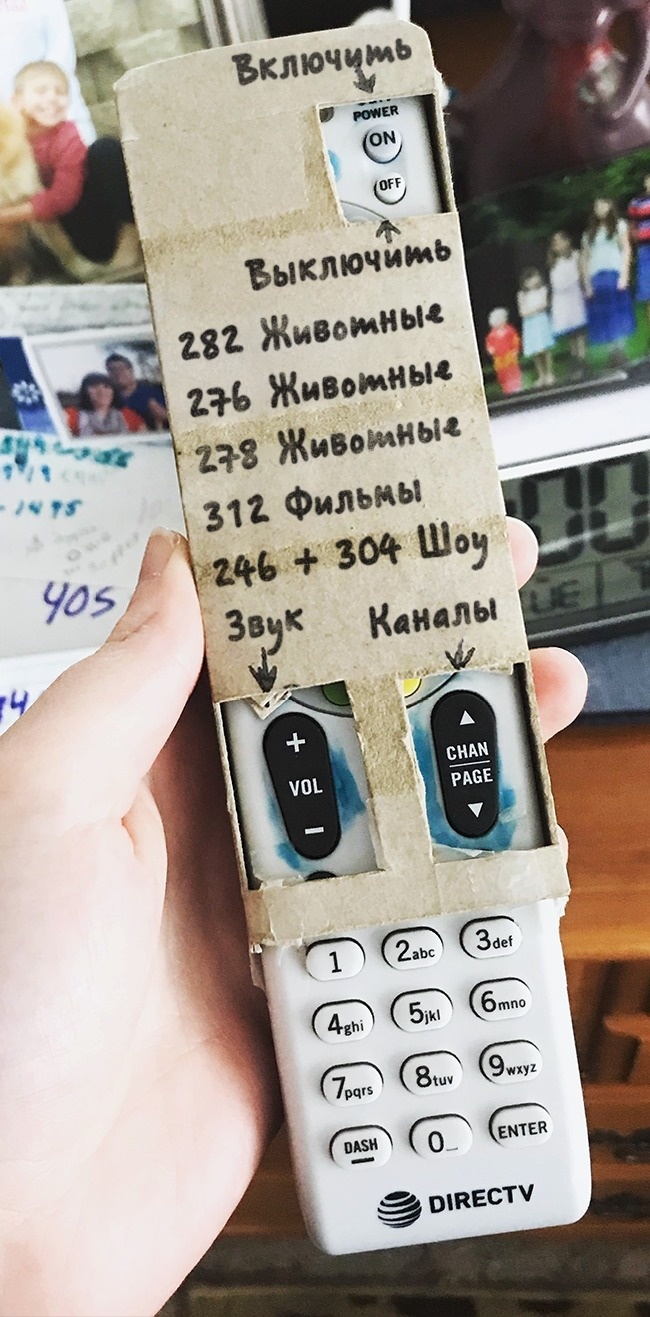 Включить
POWER
ON
OFF
Выключить
282 Животные
276 Животные
278 Животные
312 Фильмы
246 + 304 Шоу
Звук Каналы
+
VOL
−
CHAN
PAGE
1 2abc 3def
4ghi 5jkl 6mno
7pqrs 8tuv 9wxyz
DASH 0_ ENTER
DIRECTV
YOS